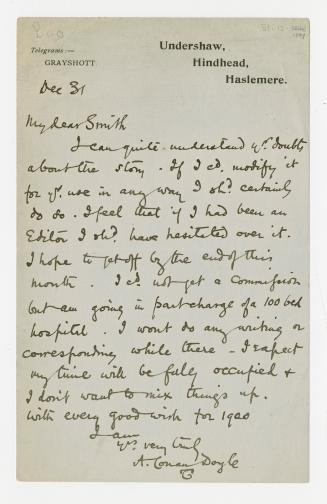 Undershaw,
Telegrams:—
Hindhead,
GRAYSHOTT.
Haslemere.
Dec 31
My dear Smith
I can quite understand yr. doubts
about the story. If I cd. modify it
for yr. use in any way I shd. certainly
do so. I feel that if I had been an
Editor I shd. have hesitated over it.
I hope to get off by the end of this
month. I cd. not get a Commission
but am going in part charge of a 100 bed
hospital. I wont do any writing or
corresponding while there – I expect
my time will be fully occupied &
I don't want to mix things up.
With every good wish for 1900
I am
yrs. very truly
A. Conan Doyle